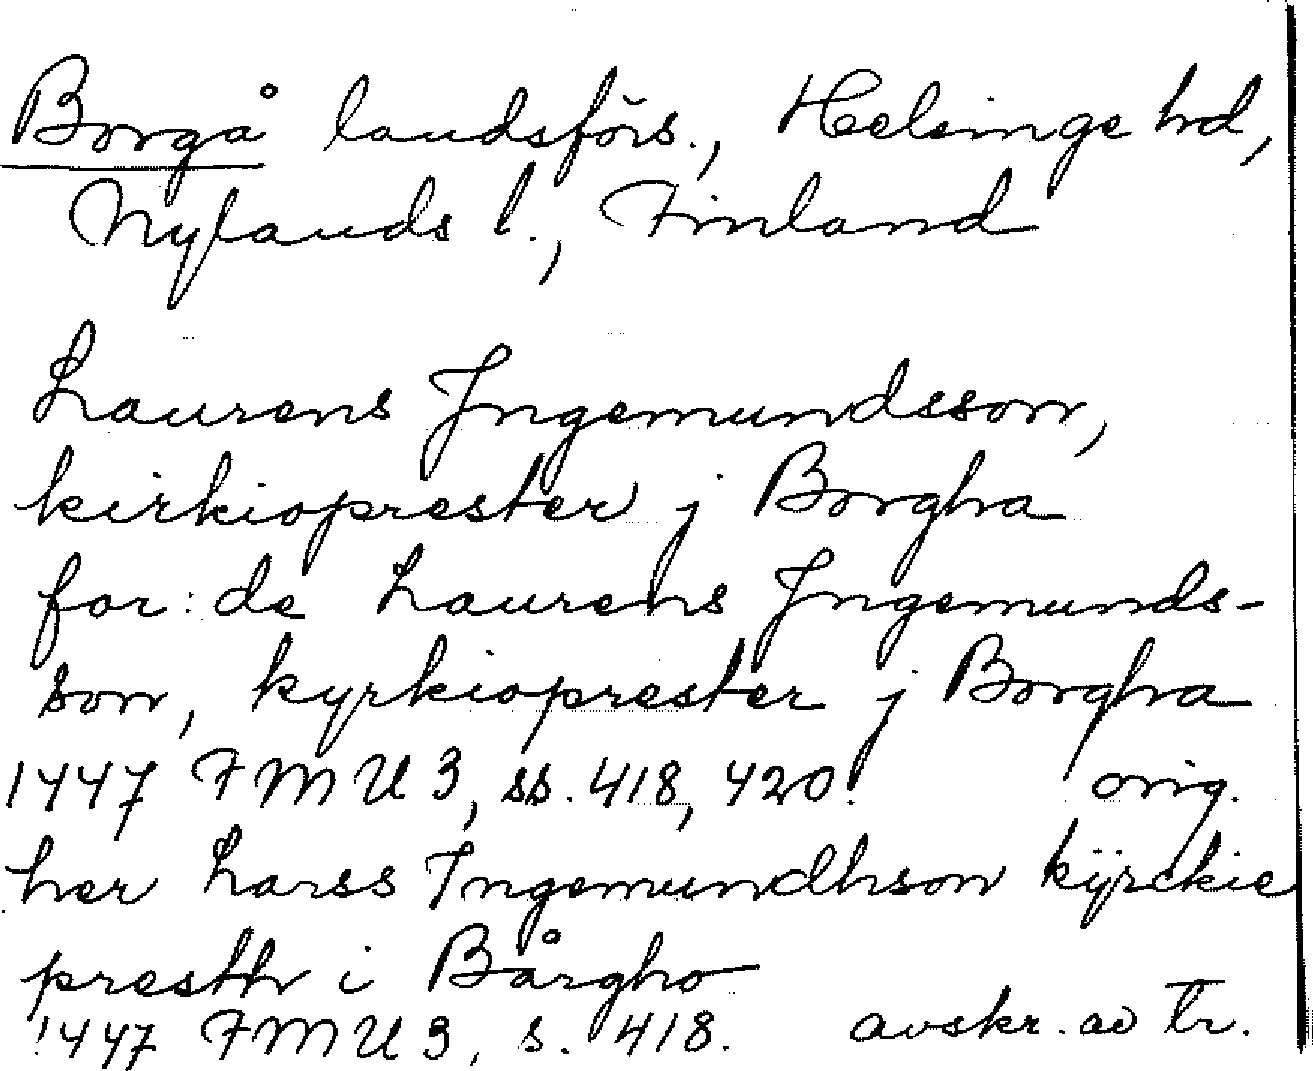 Borgå landsförs., Helsinge hd,
Nylands l., Finland
Laurens Jngemundsson,
kirkioprester j Borgha
for: de Laurens Jngemunds-
son, kyrkioprester j Borgha
1447 FMU 3, ss. 418, 420. orig.
her Larss Ingemundhson kÿrckie
presth i Bårgho
1447 FMU 3, s. 418. avskr. av